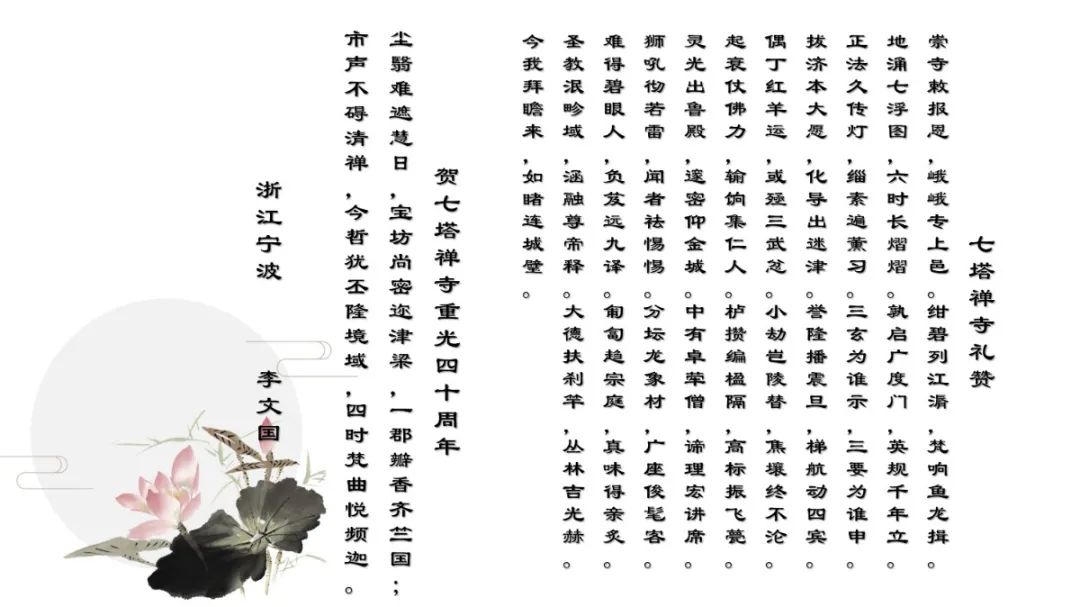 七塔禅寺礼赞
崇寺敕报恩，峨峨专上邑。绀碧列江漘，梵响鱼龙揖。
地涌七浮图，六时长熠熠。孰启广度门，英规千年立。
正法久传灯，缁素遍薰习。三玄为谁示，三要为谁申。
拔济本大愿，化导出迷津。誉隆播震旦，梯航动四宾。
偶丁红羊运，或殛三武忿。小劫岂陵替，焦壤终不沦。
起衰仗佛力，输饷集仁人。栌攒编楹隔，高标振飞甍。
灵光出鲁殿，邃密仰金城。中有卓荦僧，谛理宏讲席。
狮吼彻若雷，闻者祛惕惕。分坛龙象材，广座俊髦客。
难得碧眼人，负笈远九译。匍匐趋宗庭，真味得亲炙。
圣教泯畛域，涵融尊帝释。大德扶刹竿，丛林吉光赫。
今我拜瞻来，如睹连城璧。
贺七塔禅寺重光四十周年
尘翳难遮慧日，宝坊尚密迩津梁，一郡瓣香齐竺国；
市声不碍清禅，今哲犹丕隆境域，四时梵曲悦频迦。
浙江宁波 李文国